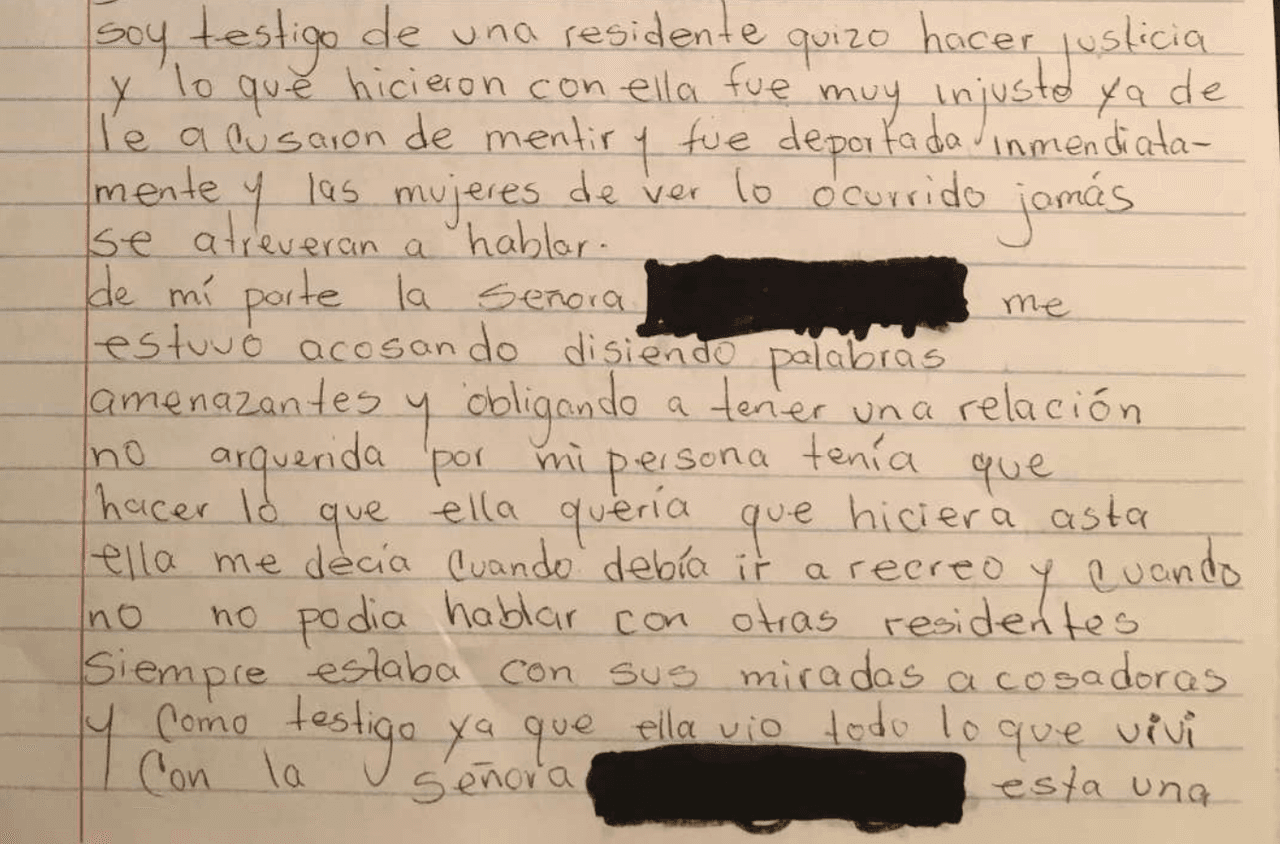 soy testigo de una residente quizo hacer justicia
y lo que hicieron con ella fue muy injusto ya de
le acusaron de mentir y fue deportada inmendiata-
mente y las mujeres de ver lo ocurrido jamás
se atreveran a hablar.
de mí parte la señora me
estuvo acosando disiendo palabras
amenazantes y obligando a tener una relación
no arquerida por mi persona tenía que
hacer lo que ella quería que hiciera asta
ella me decía cuando debía ir a recreo y cuando
no no podia hablar con otras residentes
Siempre estaba con sus miradas acosadoras
y como testigo ya que ella vio todo lo que vivi
con la señora esta una